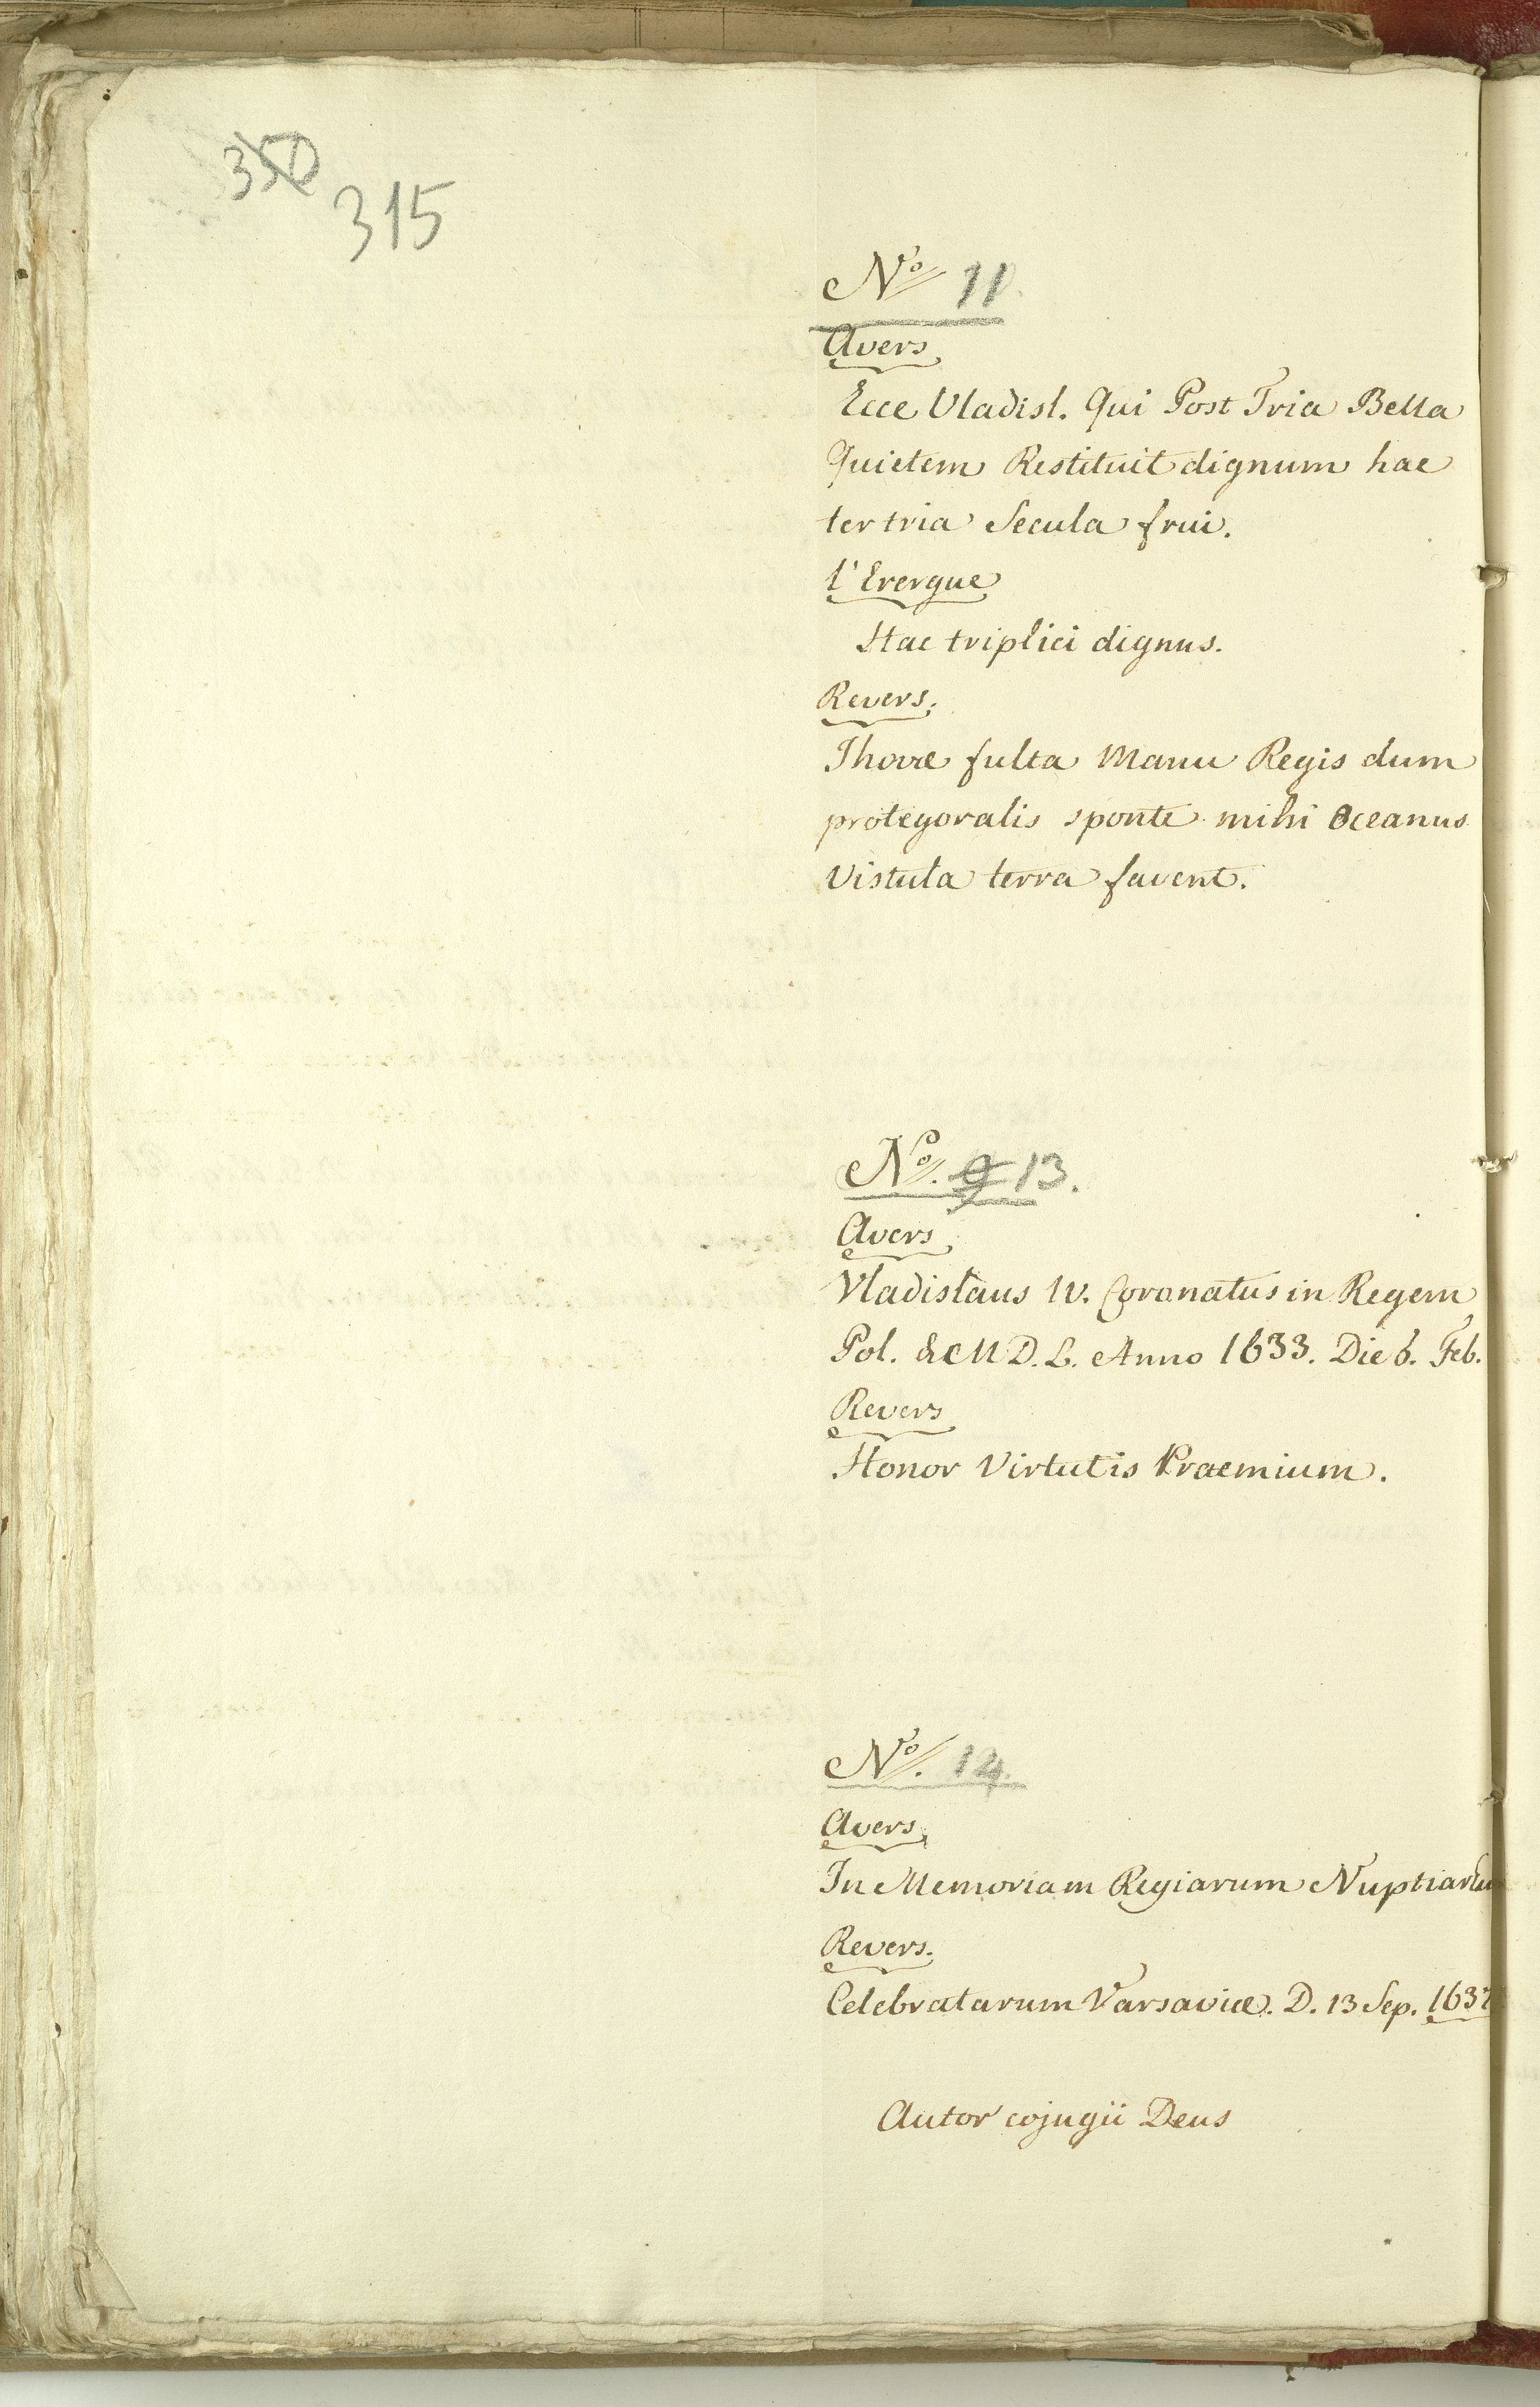 350
315
No 11.
Avers
Ecce Vladisl. Qui Post Tria Bella
Quietem Restituit dignum hac
ter tria Secula frui.
l'Exergue
Hac triplici dignus.
Revers.
Ihovæ fulta Manu Regis dum
protegoralis sponte mihi Oceanus
Vistula terra favent.
No. 9 13.
Avers
Vladislaus IV. Coronatus in Regem
Pol. & M D. L. Anno 1633. Die 6. Feb.
Revers
Honor Virtutis Praemium.
No. 14.
Avers
In Memoriam Regiarum Nuptiarum
Revers.
Celebratarum Varsaviæ. D. 13 Sep. 1637
Autor cojugii Deus